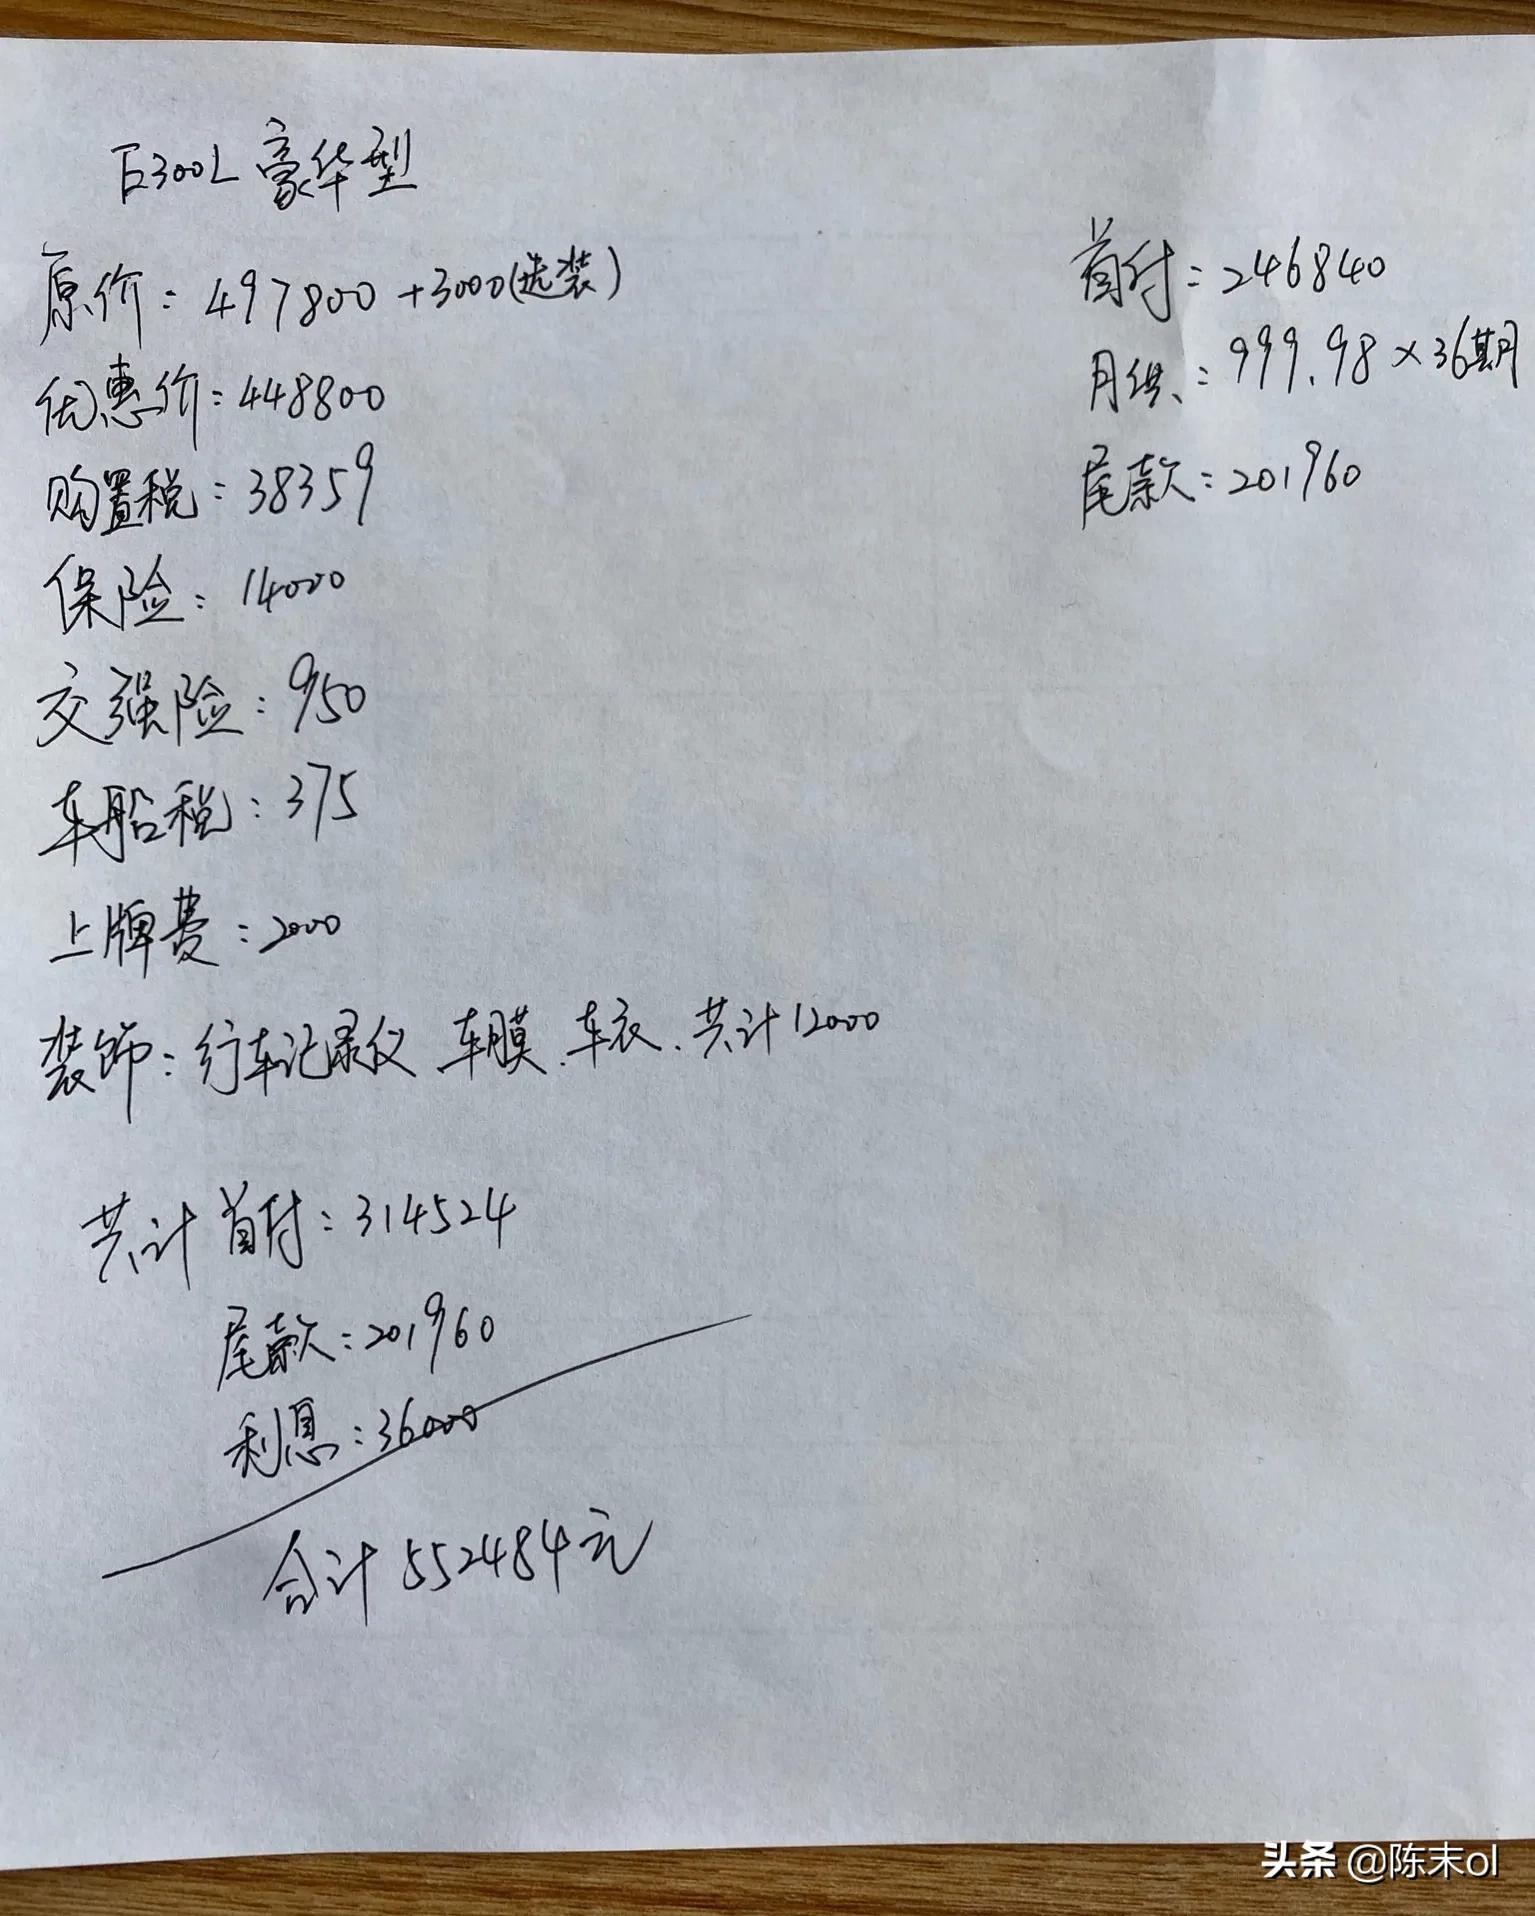 E300L 豪华型
原价：497800+3000(选装)
优惠价：448800
购置税：38359
保险：14000
交强险：950
车船税：375
上牌费：2000
装饰：行车记录仪、车膜、车衣、共计12000
共计 首付：314524
尾款：201960
利息：36000
合计 552484元
首付：246840
月供：999.98×36期
尾款：201960
头条 @陈末ol